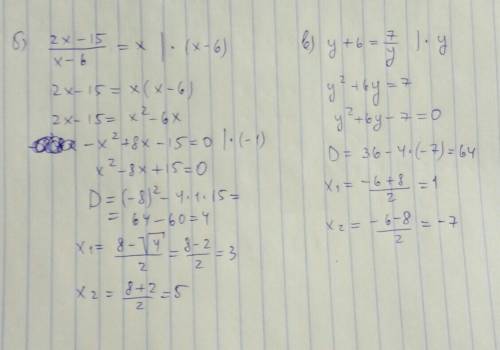 б) (2x-15)/(x-6) = x | · (x-6)
2x-15 = x(x-6)
2x-15 = x²-6x
-x²+8x-15=0 | · (-1)
x²-8x+15=0
D = (-8)² - 4·1·15 =
= 64-60=4
x₁ = (8-√4)/2 = (8-2)/2 = 3
x₂ = (8+2)/2 = 5
в) y+6 = 7/y | · y
y²+6y=7
y²+6y-7=0
D = 36-4·(-7)=64
x₁ = (-6+8)/2 = 1
x₂ = (-6-8)/2 = -7